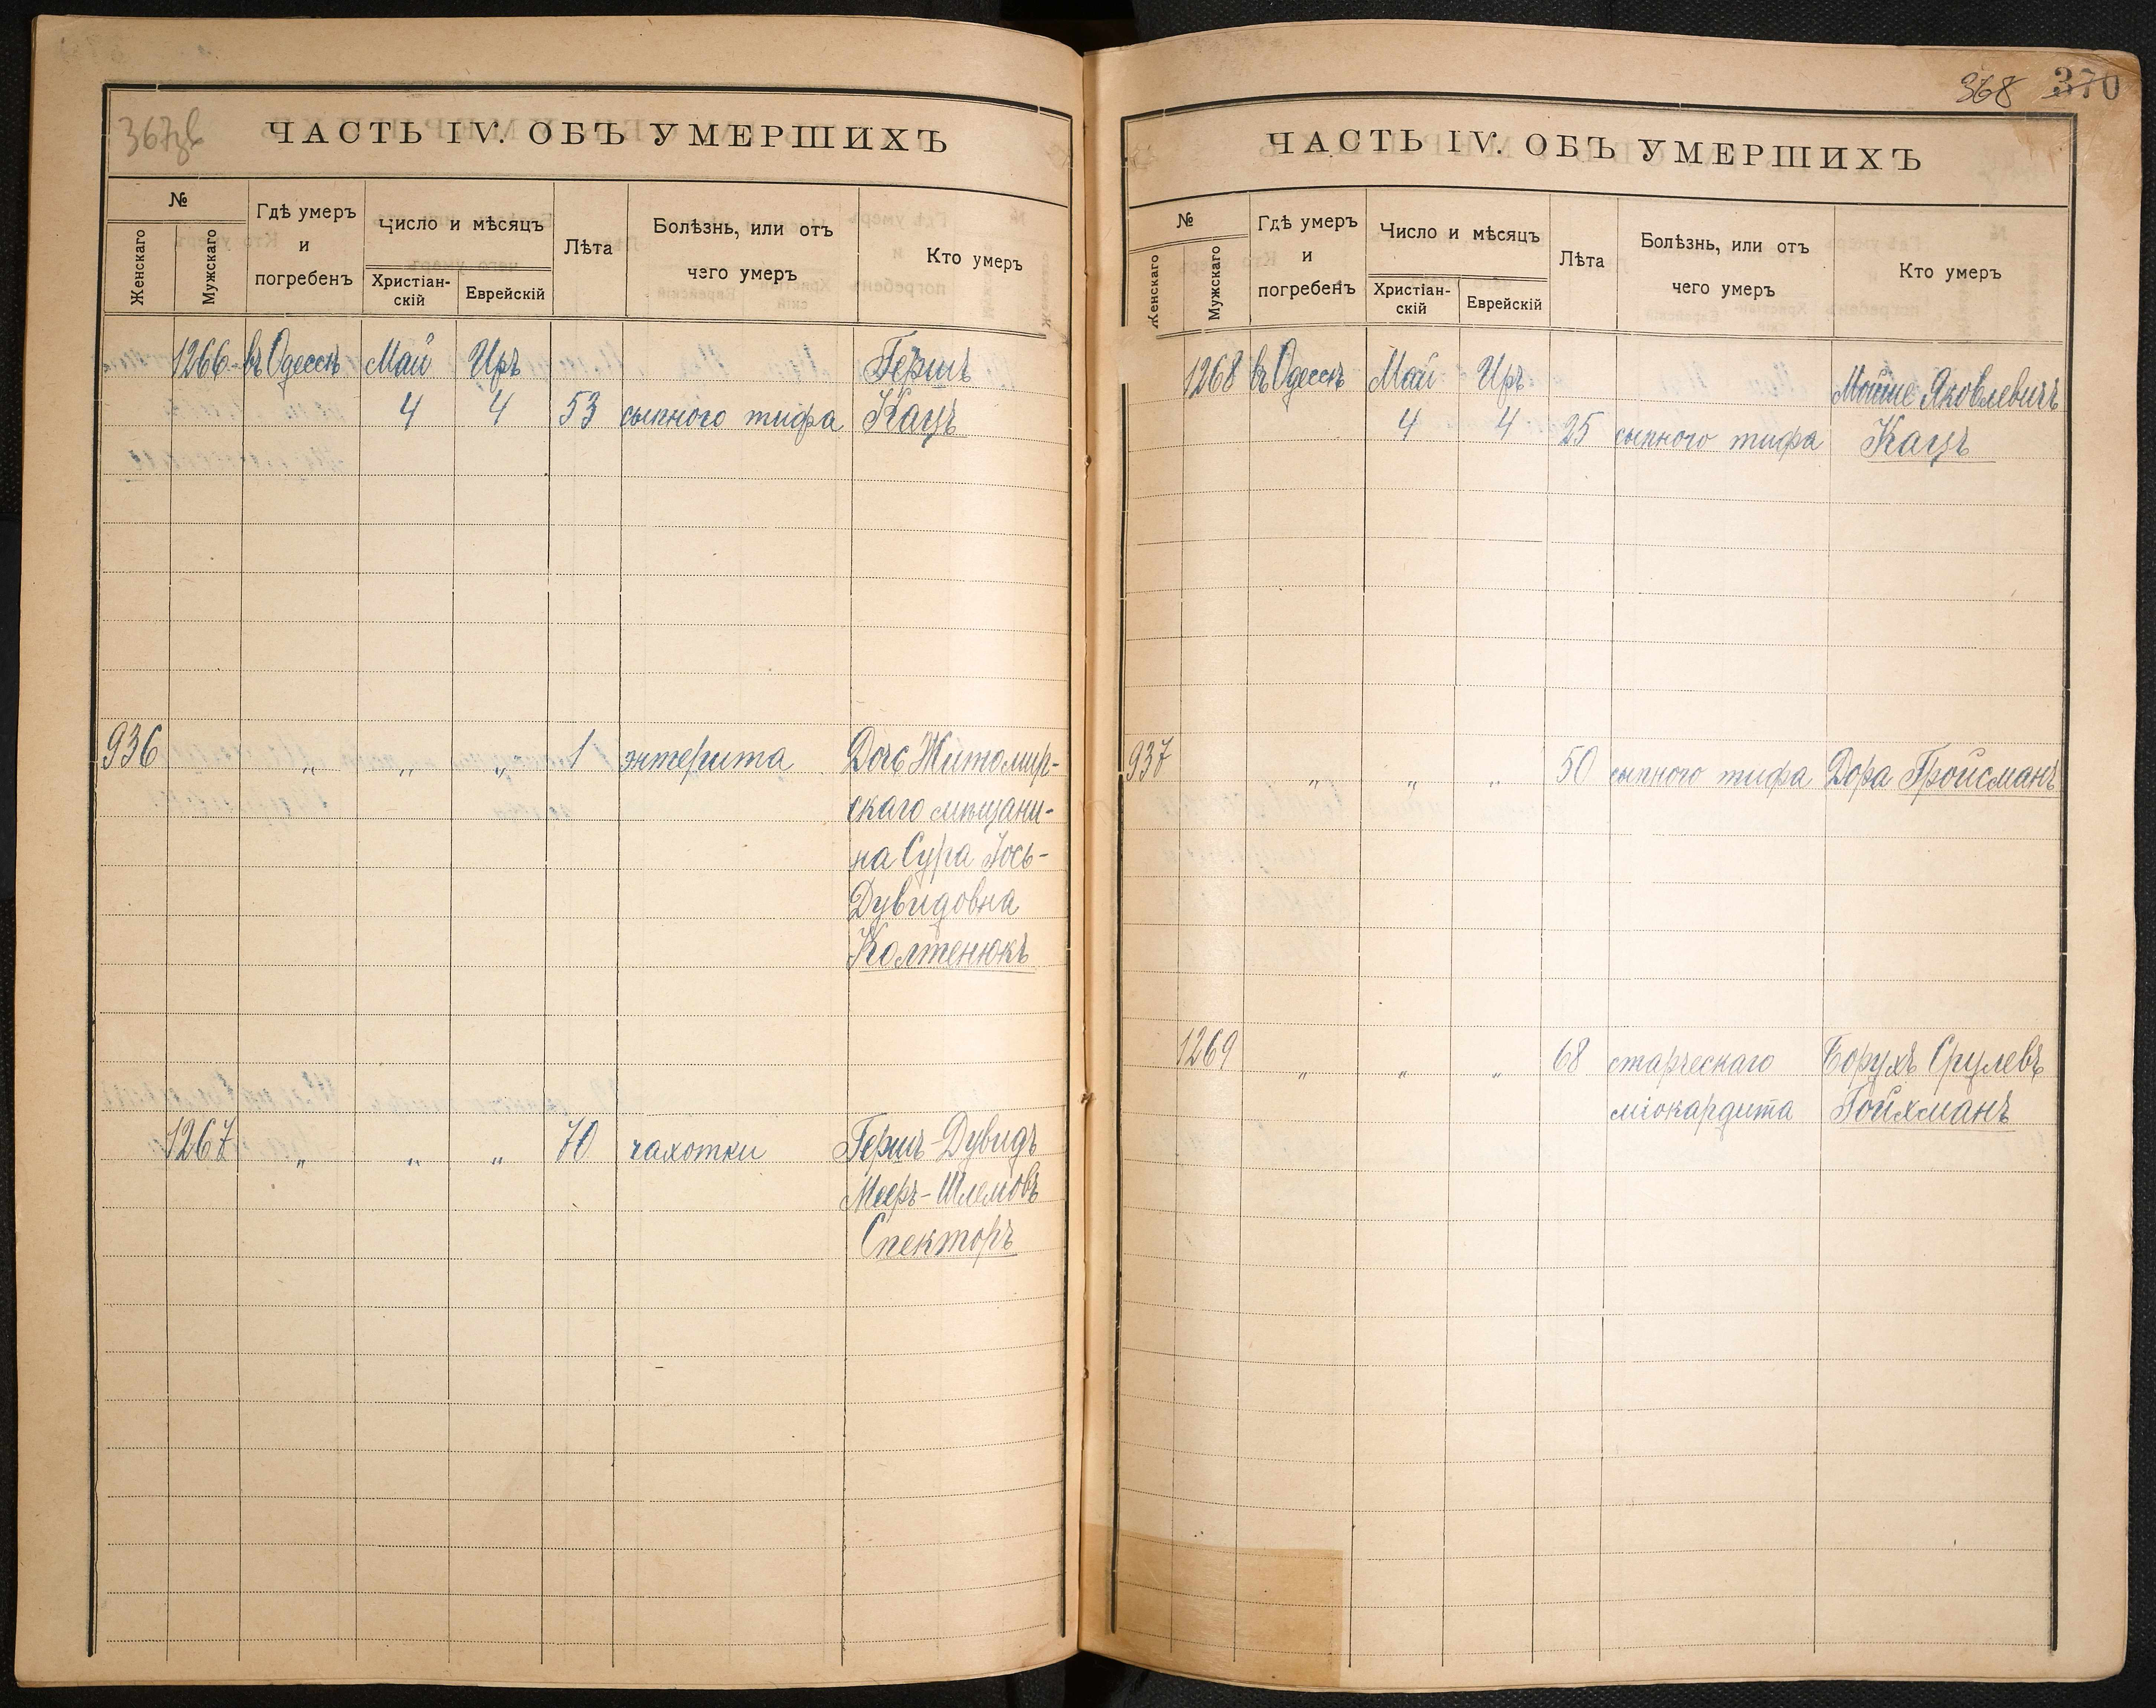 367зв
ЧАСТЬ IV. ОБЪ УМЕРШИХЪ
№
Женскаго
Мужскаго
Гдѣ умеръ
и
погребенъ
Число и мѣсяцъ
Христіан-
скій
Еврейскій
Лѣта
Болѣзнь, или отъ
чего умеръ
Кто умеръ
1266 въ Одессѣ Май Иръ Гершъ
4 4 53 сыпного тифа Кацъ
936 „ „ „ 1 энтерита Дочь Житомир-
скаго мѣщани-
на Сура Іось-
Дувидовна
Колтенюкъ
1267 „ „ „ 70 чахотки Гершъ-Дувидъ
Мееръ-Шлемовъ
Спекторъ
368 370
ЧАСТЬ IV. ОБЪ УМЕРШИХЪ
№
Женскаго
Мужскаго
Гдѣ умеръ
и
погребенъ
Число и мѣсяцъ
Христіан-
скій
Еврейскій
Лѣта
Болѣзнь, или отъ
чего умеръ
Кто умеръ
1268 въ Одессѣ Май Иръ Мойше Яковлевичъ
4 4 25 сыпного тифа Кацъ
937 „ „ „ 50 сыпного тифа Дора Гройсманъ
1269 „ „ „ 68 старческаго Борухъ Срулевъ
міокардита Гойхманъ